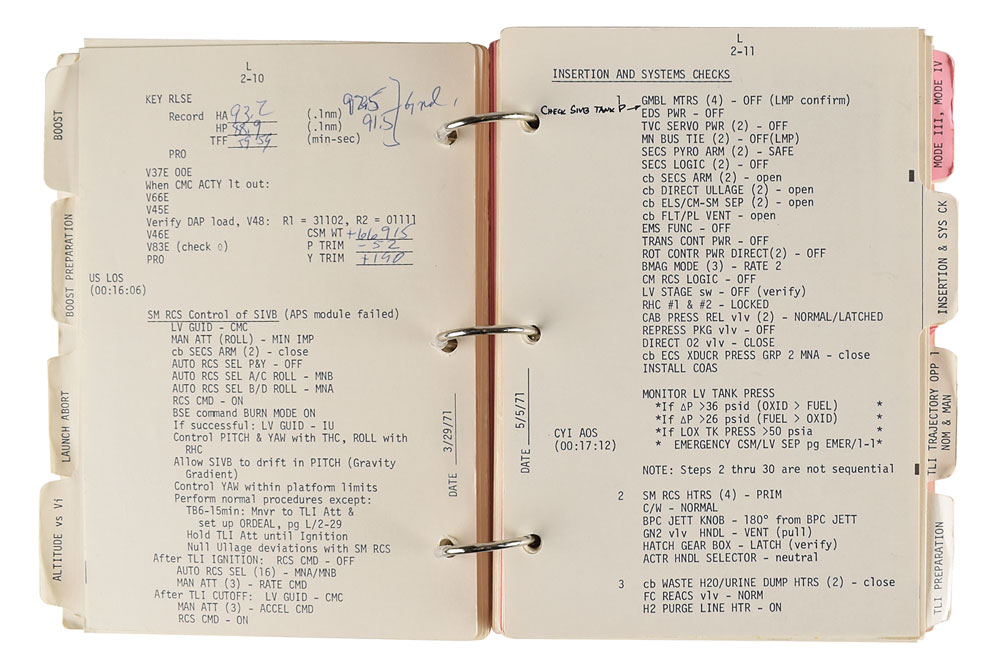 BOOST
BOOST PREPARATION
LAUNCH ABORT
ALTITUDE vs Vi
L
2-10
KEY RLSE
Record HA 93.2 (.1nm) 92.5
HP 88.9 (.1nm) 91.5
TFF 59 59 (min-sec)
PRO
V37E 00E
When CMC ACTY lt out:
V66E
V45E
Verify DAP load, V48: R1 = 31102, R2 = 01111
V46E CSM WT +66915
V83E (check 0) P TRIM -52
PRO Y TRIM +140
US LOS
(00:16:06)
SM RCS Control of SIVB (APS module failed)
LV GUID - CMC
MAN ATT (ROLL) - MIN IMP
cb SECS ARM (2) - close
AUTO RCS SEL P&Y - OFF
AUTO RCS SEL A/C ROLL - MNB
AUTO RCS SEL B/D ROLL - MNA
RCS CMD - ON
BSE command BURN MODE ON
If successful: LV GUID - IU
Control PITCH & YAW with THC, ROLL with
RHC
Allow SIVB to drift in PITCH (Gravity
Gradient)
Control YAW within platform limits
Perform normal procedures except:
TB6-15min: Mnvr to TLI Att &
set up ORDEAL, pg L/2-29
Hold TLI Att until Ignition
Null Ullage deviations with SM RCS
After TLI IGNITION: RCS CMD - OFF
AUTO RCS SEL (16) - MNA/MNB
MAN ATT (3) - RATE CMD
After TLI CUTOFF: LV GUID - CMC
MAN ATT (3) - ACCEL CMD
RCS CMD - ON
DATE 3/29/71
L
2-11
INSERTION AND SYSTEMS CHECKS
CHECK SIVB TANK P
GMBL MTRS (4) - OFF (LMP confirm)
EDS PWR - OFF
TVC SERVO PWR (2) - OFF
MN BUS TIE (2) - OFF(LMP)
SECS PYRO ARM (2) - SAFE
SECS LOGIC (2) - OFF
cb SECS ARM (2) - open
cb DIRECT ULLAGE (2) - open
cb ELS/CM-SM SEP (2) - open
cb FLT/PL VENT - open
EMS FUNC - OFF
TRANS CONT PWR - OFF
ROT CONTR PWR DIRECT(2) - OFF
BMAG MODE (3) - RATE 2
CM RCS LOGIC - OFF
LV STAGE sw - OFF (verify)
RHC #1 & #2 - LOCKED
CAB PRESS REL vlv (2) - NORMAL/LATCHED
REPRESS PKG vlv - OFF
DIRECT O2 vlv - CLOSE
cb ECS XDUCR PRESS GRP 2 MNA - close
INSTALL COAS
MONITOR LV TANK PRESS
*If ΔP >36 psid (OXID > FUEL) *
*If ΔP >26 psid (FUEL > OXID) *
*If LOX TK PRESS >50 psia *
* EMERGENCY CSM/LV SEP pg EMER/1-1*
CYI AOS
(00:17:12)
NOTE: Steps 2 thru 30 are not sequential
2 SM RCS HTRS (4) - PRIM
C/W - NORMAL
BPC JETT KNOB - 180° from BPC JETT
GN2 vlv HNDL - VENT (pull)
HATCH GEAR BOX - LATCH (verify)
ACTR HNDL SELECTOR - neutral
3 cb WASTE H2O/URINE DUMP HTRS (2) - close
FC REACS vlv - NORM
H2 PURGE LINE HTR - ON
DATE 5/5/71
MODE III, MODE IV
INSERTION & SYS CK
TLI TRAJECTORY OPP 1
NOM & MAN
TLI PREPARATION